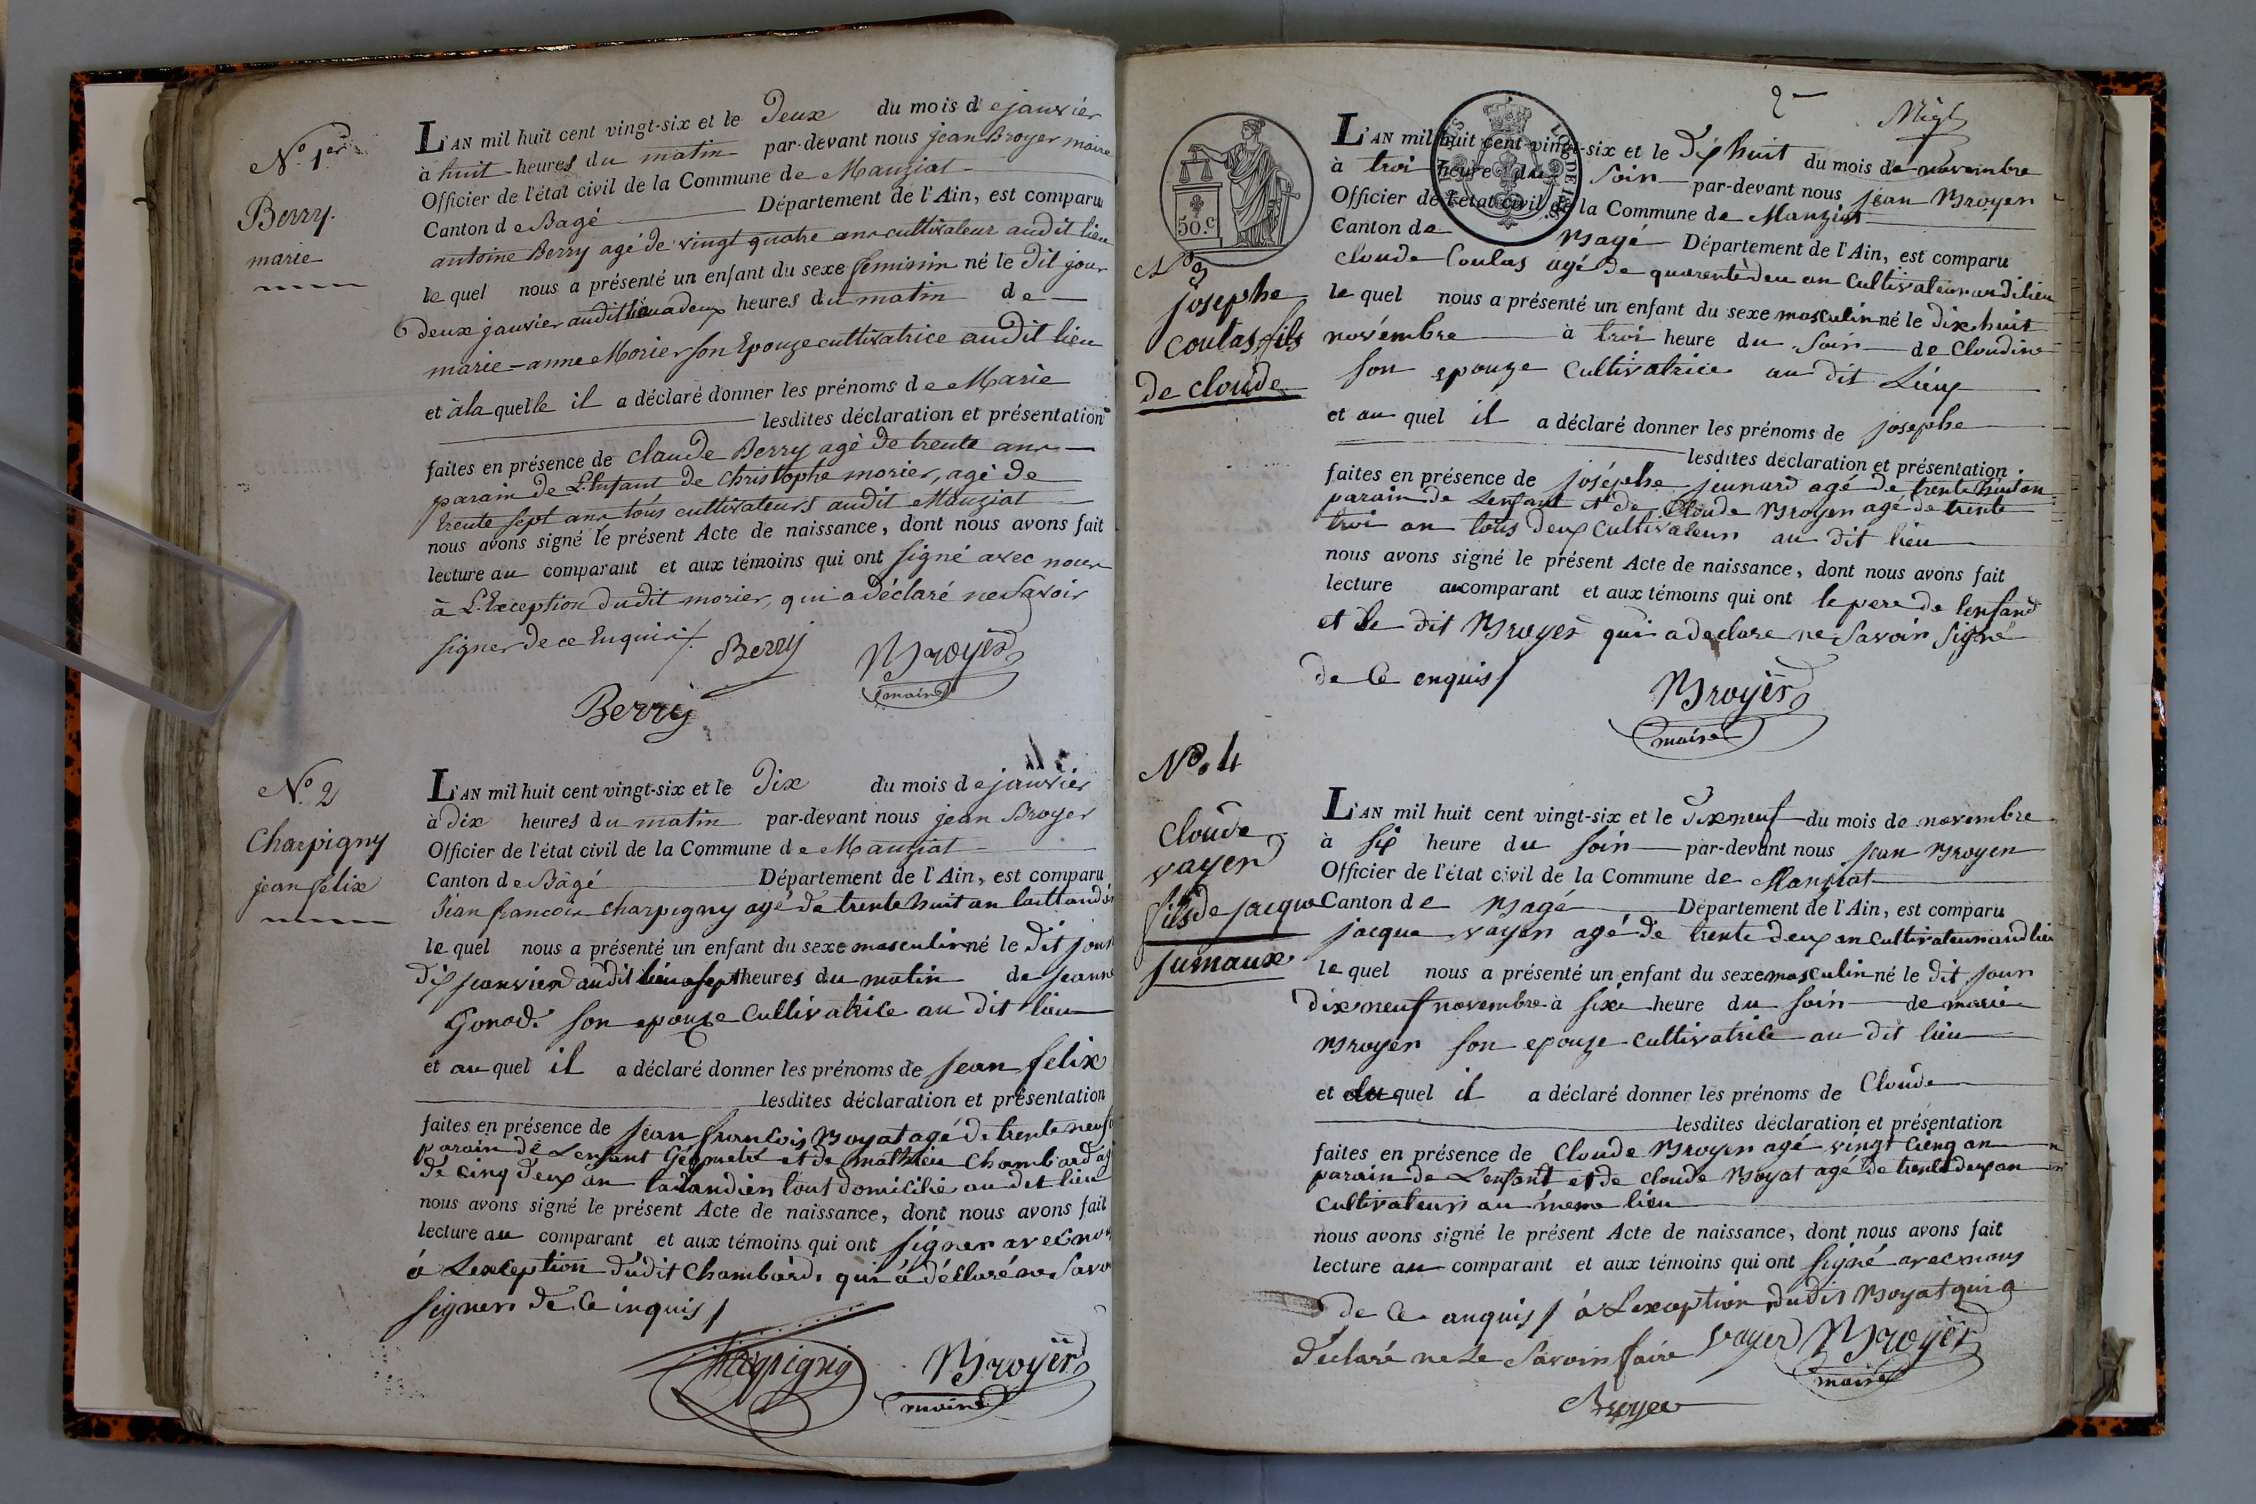 N.o 1er
Berry.
marie
L'AN mil huit cent vingt-six et le Deux du mois de janvier
à huit heures du matin par-devant nous jean Broyer maire
Officier de l'état civil de la Commune de Manziat
Canton de Bagé Département de l'Ain, est comparu
antoine Berry agé de vingt quatre ans cultivateur audit lieu
le quel nous a présenté un enfant du sexe feminin né le dit jour
deux janvier audit lieu a deux heures du matin de
marie-anne Morier son Epouze cultivatrice audit lieu
et à la quelle il a déclaré donner les prénoms de Marie
lesdites déclaration et présentation
faites en présence de claude Berry agé de trente ans
parain de L'Enfant de Christophe morier, agé de
trente sept ans tous cultivateurs audit Manziat
nous avons signé le présent Acte de naissance, dont nous avons fait
lecture au comparant et aux témoins qui ont signé avec nous
à L'Exception dudit morier, qui a déclaré ne Savoir
signer de ce Enquis /.
Berry Broyer
maire
Berry
N.o 2
Charpigny
jean félix
L'AN mil huit cent vingt-six et le Dix du mois de janvier
à dix heures du matin par-devant nous jean Broyer
Officier de l'état civil de la Commune de Manziat
Canton de Bâgé Département de l'Ain, est comparu
jean francois charpigny agé de trente huit an
le quel nous a présenté un enfant du sexe masculin né le dit jour
dix janvier audit lieu a sept heures du matin de jeanne
Gonod. son epouze cultivatrice au dit lieu
et au quel il a déclaré donner les prénoms de jean felix
lesdites déclaration et présentation
faites en présence de jean francois Boyat agé de trente neuf
parain de L'enfant Géometre et de mathieu Chambard agé
de cinq deux an taliandier tout domicilié au dit lieu
nous avons signé le présent Acte de naissance, dont nous avons fait
lecture au comparant et aux témoins qui ont signer avec nous
à L'exception dudit Chambard, qui à déclaré ne Savo
signer de ce inquis /
Charpigny Broyer
maire
2
50.C
L'AN mil huit cent vingt-six et le dix huit du mois de novembre
à troi heure du soir par-devant nous jean Broyer
Officier de l'état civil de la Commune de Manziat
Canton de Bagé Département de l'Ain, est comparu
cloude Coulas agé de quarente deu an cultivateur audi lieu
le quel nous a présenté un enfant du sexe masculin né le dix huit
novembre à troi heure du soir de Cloudine
son epouze cultivatrice au dit Lieux
et au quel il a déclaré donner les prénoms de josephe
lesdites déclaration et présentation
faites en présence de joséphe jeunard agé de trente huit an
parain de Lenfant et de Cloude Broyer agé de trente
troi an tous deux cultivateur au dit lieu
nous avons signé le présent Acte de naissance, dont nous avons fait
lecture au comparant et aux témoins qui ont le pere de lenfand
et le dit Broyer qui a declare ne savoir signé
de ce enquis /
Broyer
maire
N.o 3
josephe
coulas fils
de cloude
No. 4
Cloude
vayer
fils de jacque
jumaux
L'AN mil huit cent vingt-six et le dix neuf du mois de novembre
à six heure du soir par-devant nous jean Broyer
Officier de l'état civil de la Commune de Manziat
Canton de Bagé Département de l'Ain, est comparu
jacque vayer agé de trente deux an cultivateur aud lieu
le quel nous a présenté un enfant du sexe masculin né le dit jour
dix neuf novembre à sixe heure du soir de marie
Broyer son epouze cultivatrice au dit lieu
et du quel il a déclaré donner les prénoms de Cloude
lesdites déclaration et présentation
faites en présence de Cloude Broyer agé vingt cinq an
parain de L'enfant et de cloude Boyat agé de trente deux an
cultivateur au meme lieu
nous avons signé le présent Acte de naissance, dont nous avons fait
lecture au comparant et aux témoins qui ont signé avec nous
de ce anquis / à L'exception dudit Boyat qui a
déclaré ne Le Savoir faire vayer Broyer
maire
Broyer